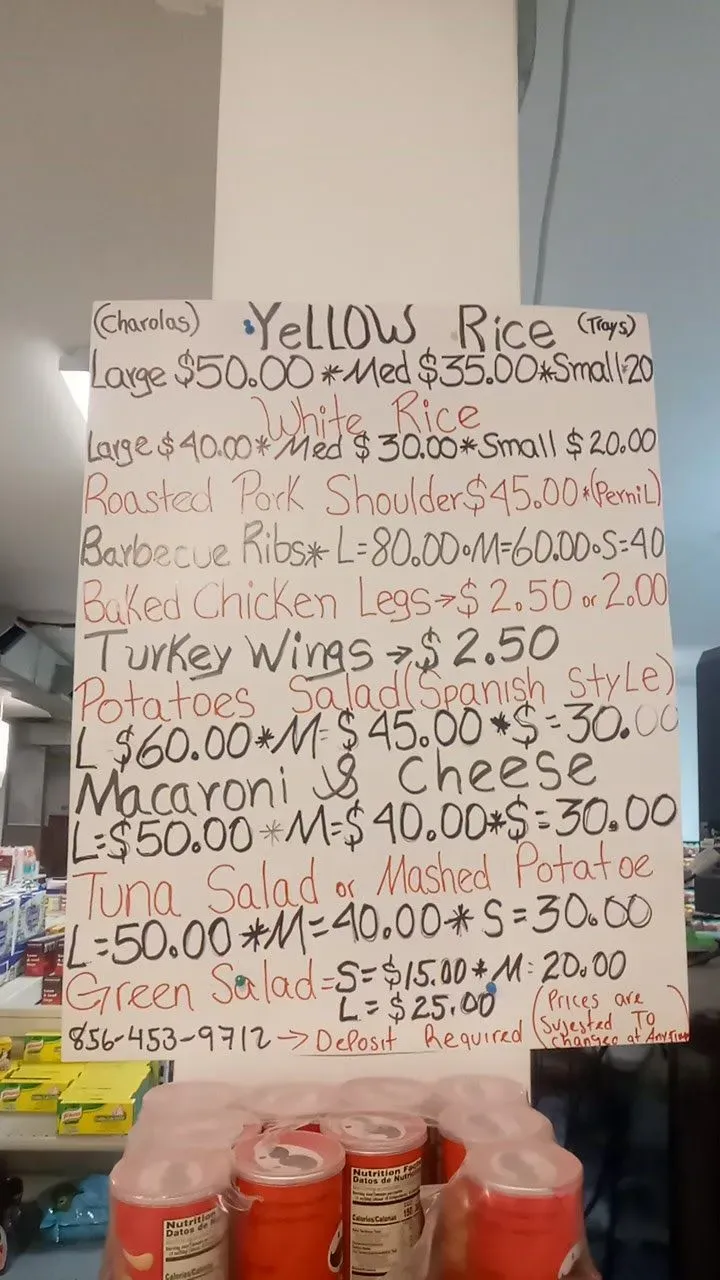 (Charolas) YeLLOW Rice (Trays)
Large $50.00 *Med $35.00*Small 20
White Rice
Large $40.00* Med $30.00*Small $20.00
Roasted Pork Shoulder $45.00*(PerniL)
Barbecue Ribs* L=80.00•M=60.00•S=40
Baked Chicken Legs→$2.50 or 2.00
Turkey Wings →$2.50
Potatoes Salad (Spanish StyLe)
L $60.00*M=$45.00 *S=30.00
Macaroni & Cheese
L=$50.00 *M=$40.00*S=30.00
Tuna Salad or Mashed Potatoe
L=50.00 *M=40.00* S=30.00
Green Salad=S=$15.00*M=20.00
L=$25.00
856-453-9712 → Deposit Required
(Prices are
Sujested TO
changed at Anytime
Nutrition
Datos de
Calories/Calorías
Nutrition Facts
Datos de
Calories/Calorías 150
Knorr